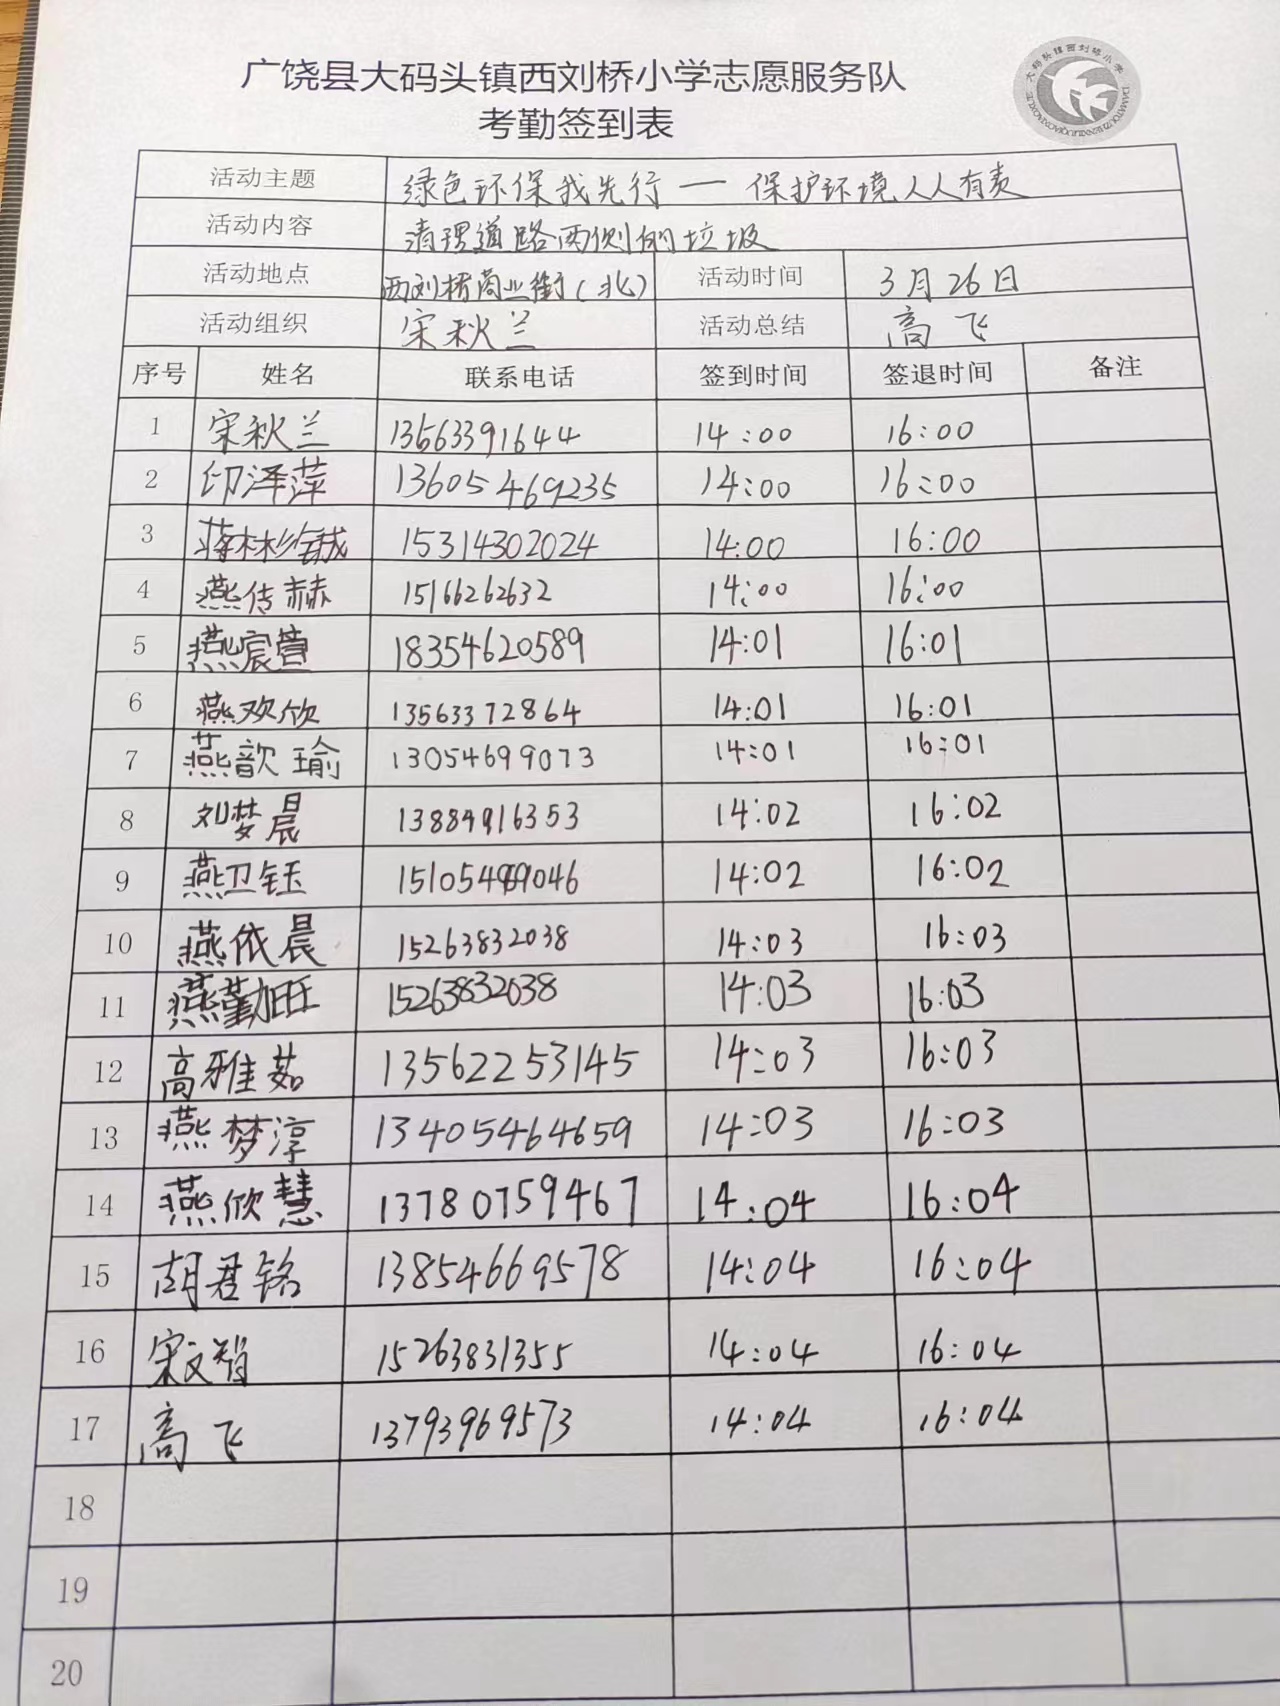 广饶县大码头镇西刘桥小学志愿服务队
考勤签到表
活动主题 绿色环保我先行 — 保护环境人人有责
活动内容 清理道路两侧的垃圾
活动地点 西刘桥商业街(北) 活动时间 3月26日
活动组织 宋秋兰 活动总结 高飞
序号 姓名 联系电话 签到时间 签退时间 备注
1 宋秋兰 13563391644 14:00 16:00
2 印泽萍 13605469235 14:00 16:00
3 15314302024 14:00 16:00
4 燕传赫 15166262632 14:00 16:00
5 燕宸萱 18354620589 14:01 16:01
6 燕欢欣 13563372864 14:01 16:01
7 燕歆瑜 13054699073 14:01 16:01
8 刘梦晨 13889916353 14:02 16:02
9 燕卫钰 14:02 16:02
10 燕依晨 15263832038 14:03 16:03
11 15263832038 14:03 16:03
12 高雅茹 13562253145 14:03 16:03
13 燕梦淳 13405464659 14:03 16:03
14 燕欣慧 13780759467 14:04 16:04
15 胡君铭 13854669578 14:04 16:04
16 宋文智 15263831355 14:04 16:04
17 高飞 13793969573 14:04 16:04
18
19
20